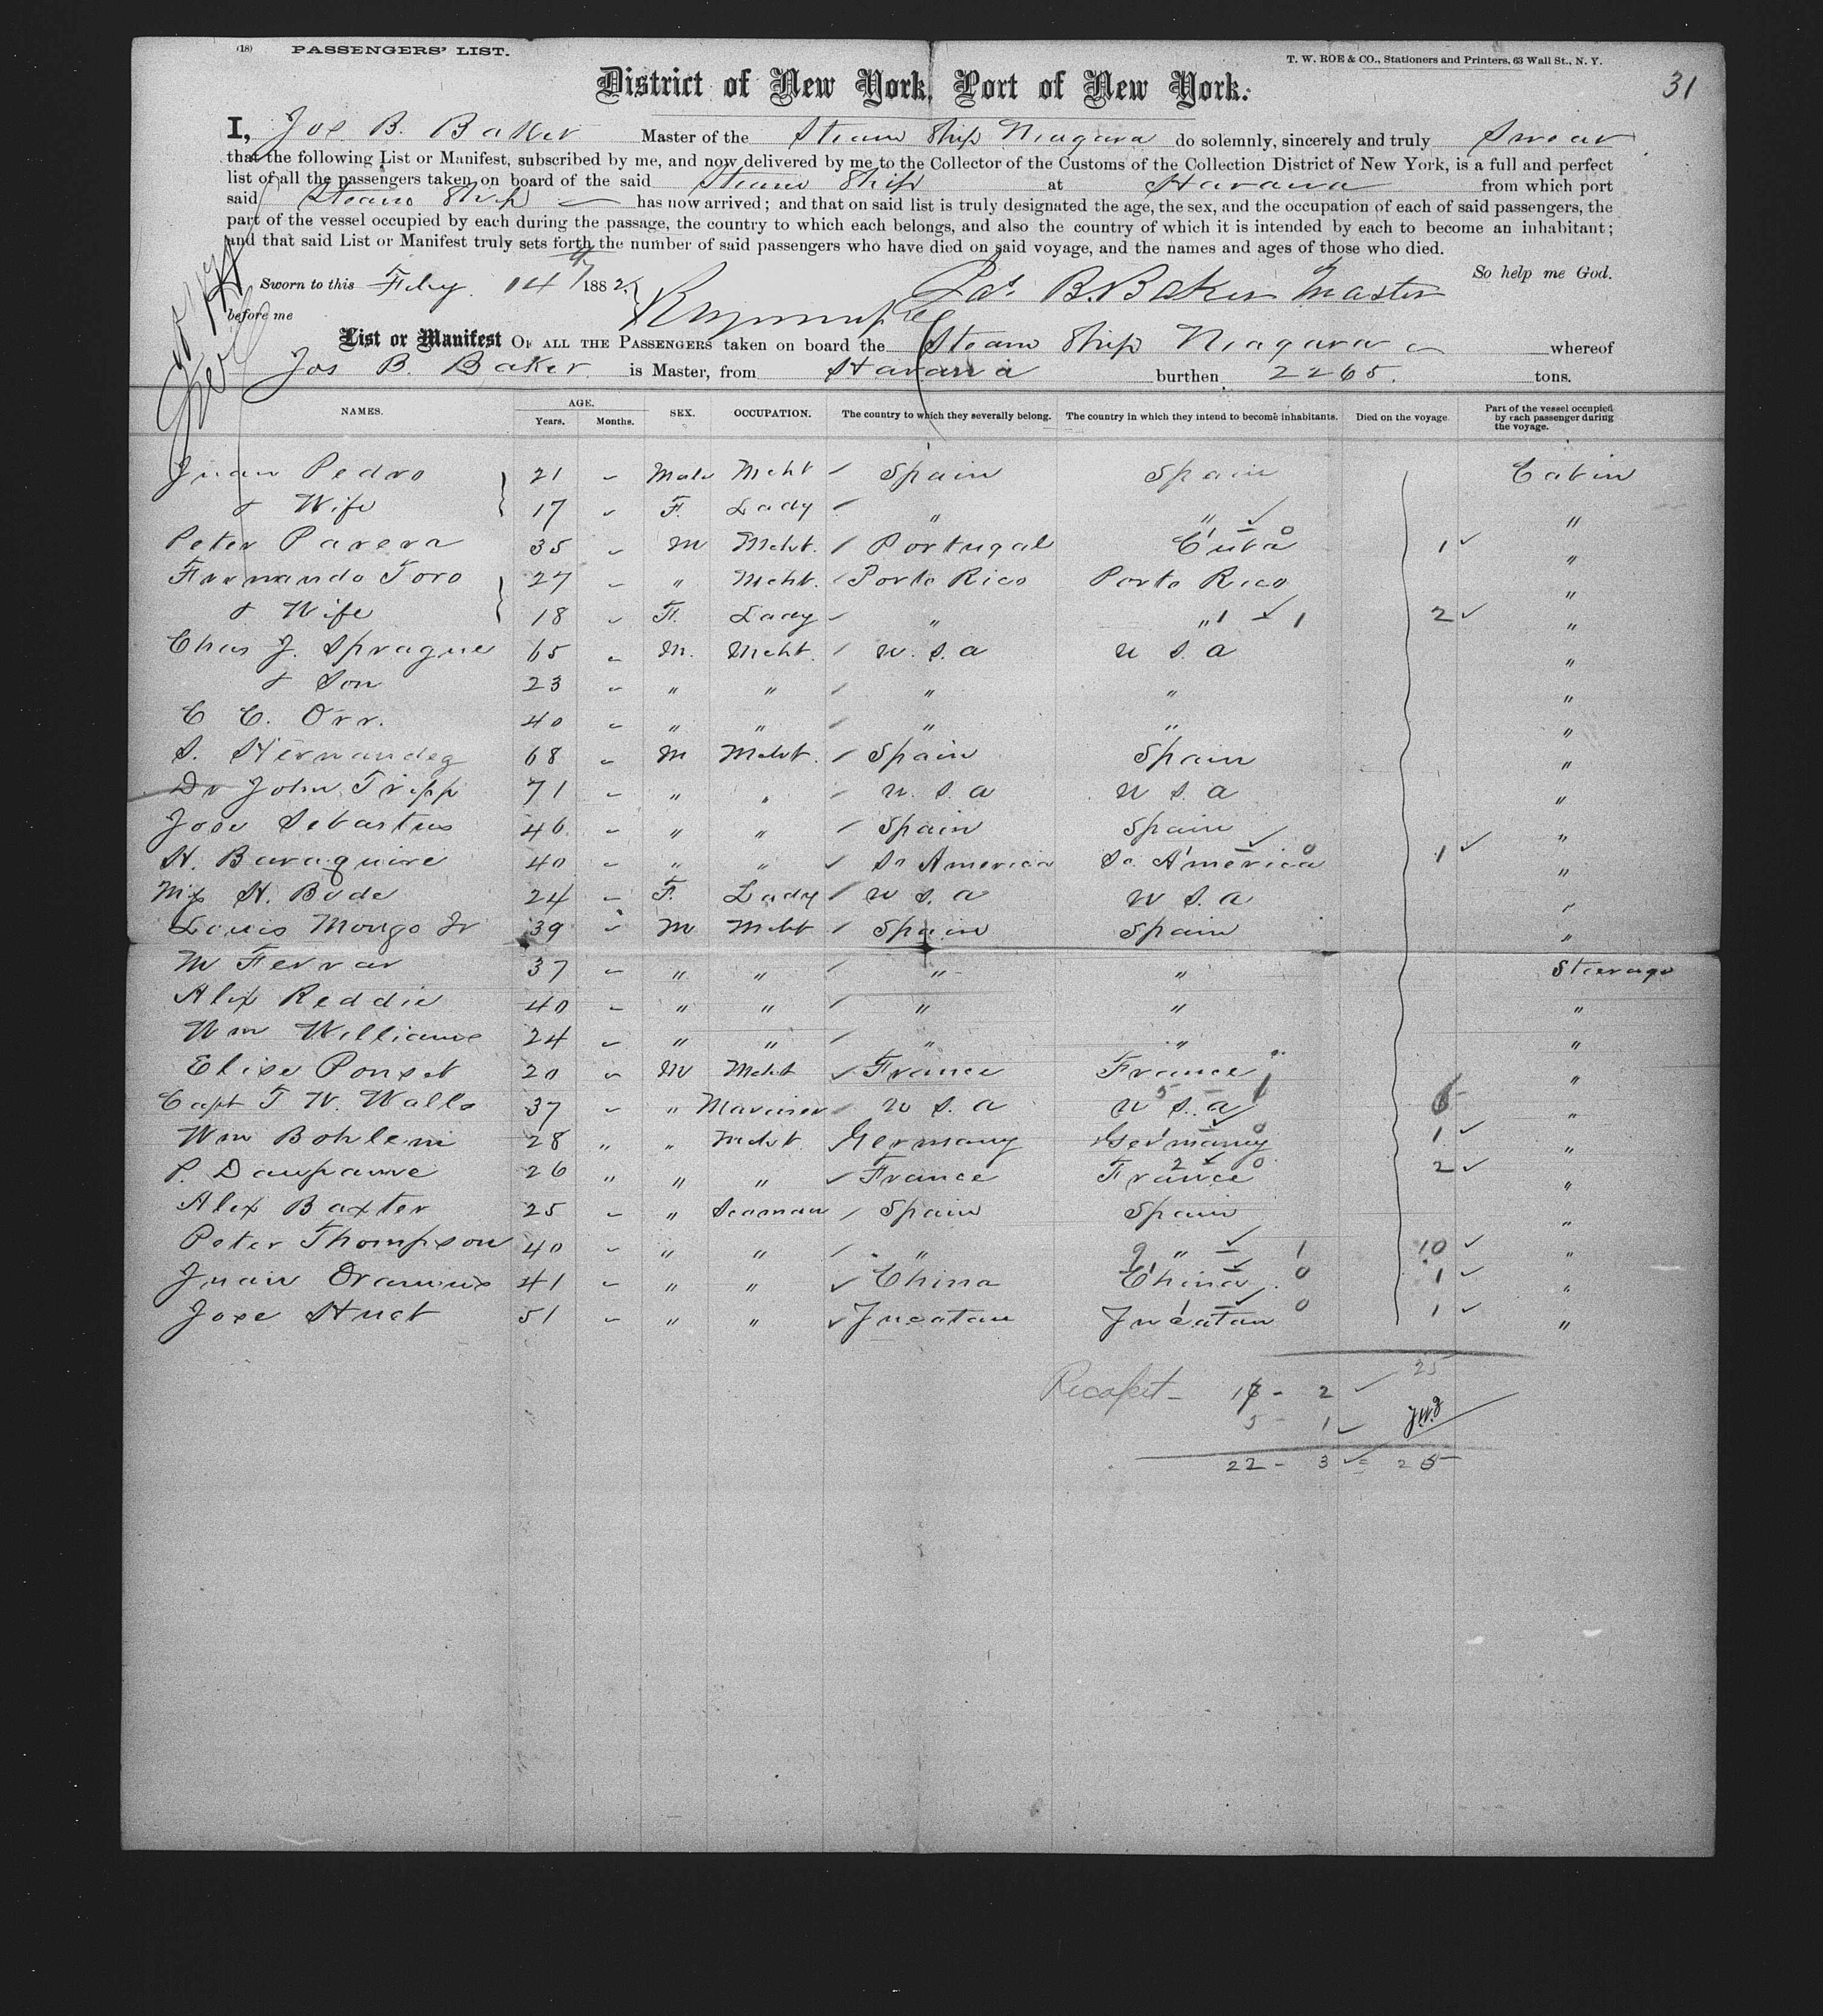 (18) PASSENGERS' LIST.
T. W. ROE & CO., Stationers and Printers, 63 Wall St., N. Y.
31
District of New York, Port of New York.
I, Jos B. Baker Master of the Steam Ship Niagara do solemnly, sincerely and truly Swear
that the following List or Manifest, subscribed by me, and now delivered by me to the Collector of the Customs of the Collection District of New York, is a full and perfect
list of all the passengers taken on board of the said Steam Ship at Havana from which port
said Steam Ship has now arrived; and that on said list is truly designated the age, the sex, and the occupation of each of said passengers, the
part of the vessel occupied by each during the passage, the country to which each belongs, and also the country of which it is intended by each to become an inhabitant;
and that said List or Manifest truly sets forth the number of said passengers who have died on said voyage, and the names and ages of those who died.
So help me God.
Sworn to this Feby. 14th 1882. Jas. B. Baker Master
before me
List or Manifest OF ALL THE PASSENGERS taken on board the Steam Ship Niagara whereof
Jos B. Baker is Master, from Havana burthen 2265. tons.
NAMES. AGE. Years. Months. SEX. OCCUPATION. The country to which they severally belong. The country in which they intend to become inhabitants. Died on the voyage. Part of the vessel occupied by each passenger during the voyage.
Juan Pedro 21 Male Mcht Spain Spain Cabin
& Wife 17 F. Lady " " "
Peter Parera 35 M Mcht. Portugal Cuba 1 "
Fernando Toro 27 " Mcht. Porto Rico Porto Rico "
& Wife 18 F. Lady " " 1 1 2 "
Chas J. Sprague 65 M. Mcht. U. S. A U S. A "
& Son 23 " " " " "
C C. Orr. 40 " " " " "
S. Hernandez 68 M Mcht. Spain Spain "
Dr John Tripp 71 " " U. S. A U S. A "
Jose Sebastus 46 " " Spain Spain "
H. Baraquire 40 " " So America So America 1 "
Miss H. Bode 24 F. Lady U S. A U S. A "
Louis Mongo Jr 39 M Mcht Spain Spain "
M Ferrar 37 " " " " Steerage
Alex Reddie 40 " " " " "
Wm Williams 24 " " " " "
Elise Ponset 20 M Mcht France France "
Capt T W. Walls 37 " Mariner U S. A U S. A 5 1 6 "
Wm Bohlem 28 " " Mcht. Germany Germany 1 "
P. Daupanne 26 " " " France France 2 0 2 "
Alex Baxter 25 " Seaman Spain Spain "
Peter Thompson 40 " " " 9 " 1 10 "
Juan Oramus 41 " " China China 0 1 "
Jose Huet 51 " " Jucatan Jucatan 1 0 1 "
25
17 - 2
5 - 1
22 - 3 = 25